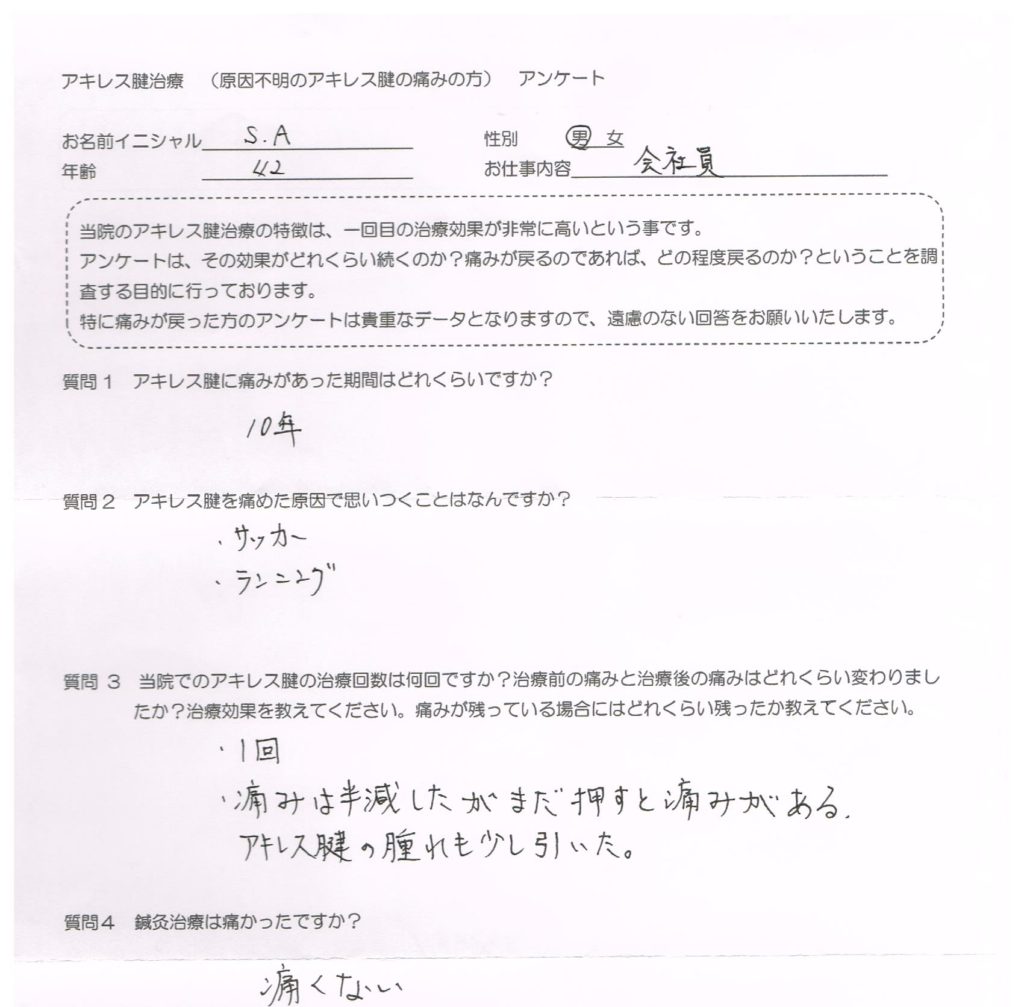 アキレス腱治療　（原因不明のアキレス腱の痛みの方）　アンケート
お名前イニシャル S.A　性別　男　女
年齢 42　お仕事内容 会社員
当院のアキレス腱治療の特徴は、一回目の治療効果が非常に高いという事です。
アンケートは、その効果がどれくらい続くのか？痛みが戻るのであれば、どの程度戻るのか？ということを調
査する目的に行っております。
特に痛みが戻った方のアンケートは貴重なデータとなりますので、遠慮のない回答をお願いいたします。
質問１　アキレス腱に痛みがあった期間はどれくらいですか？
10年
質問２　アキレス腱を痛めた原因で思いつくことはなんですか？
・サッカー
・ランニング
質問 ３　当院でのアキレス腱の治療回数は何回ですか？治療前の痛みと治療後の痛みはどれくらい変わりまし
たか？治療効果を教えてください。痛みが残っている場合にはどれくらい残ったか教えてください。
・1回
・痛みは半減したがまだ押すと痛みがある.
アキレス腱の腫れも少し引いた。
質問４　鍼灸治療は痛かったですか？
痛くない